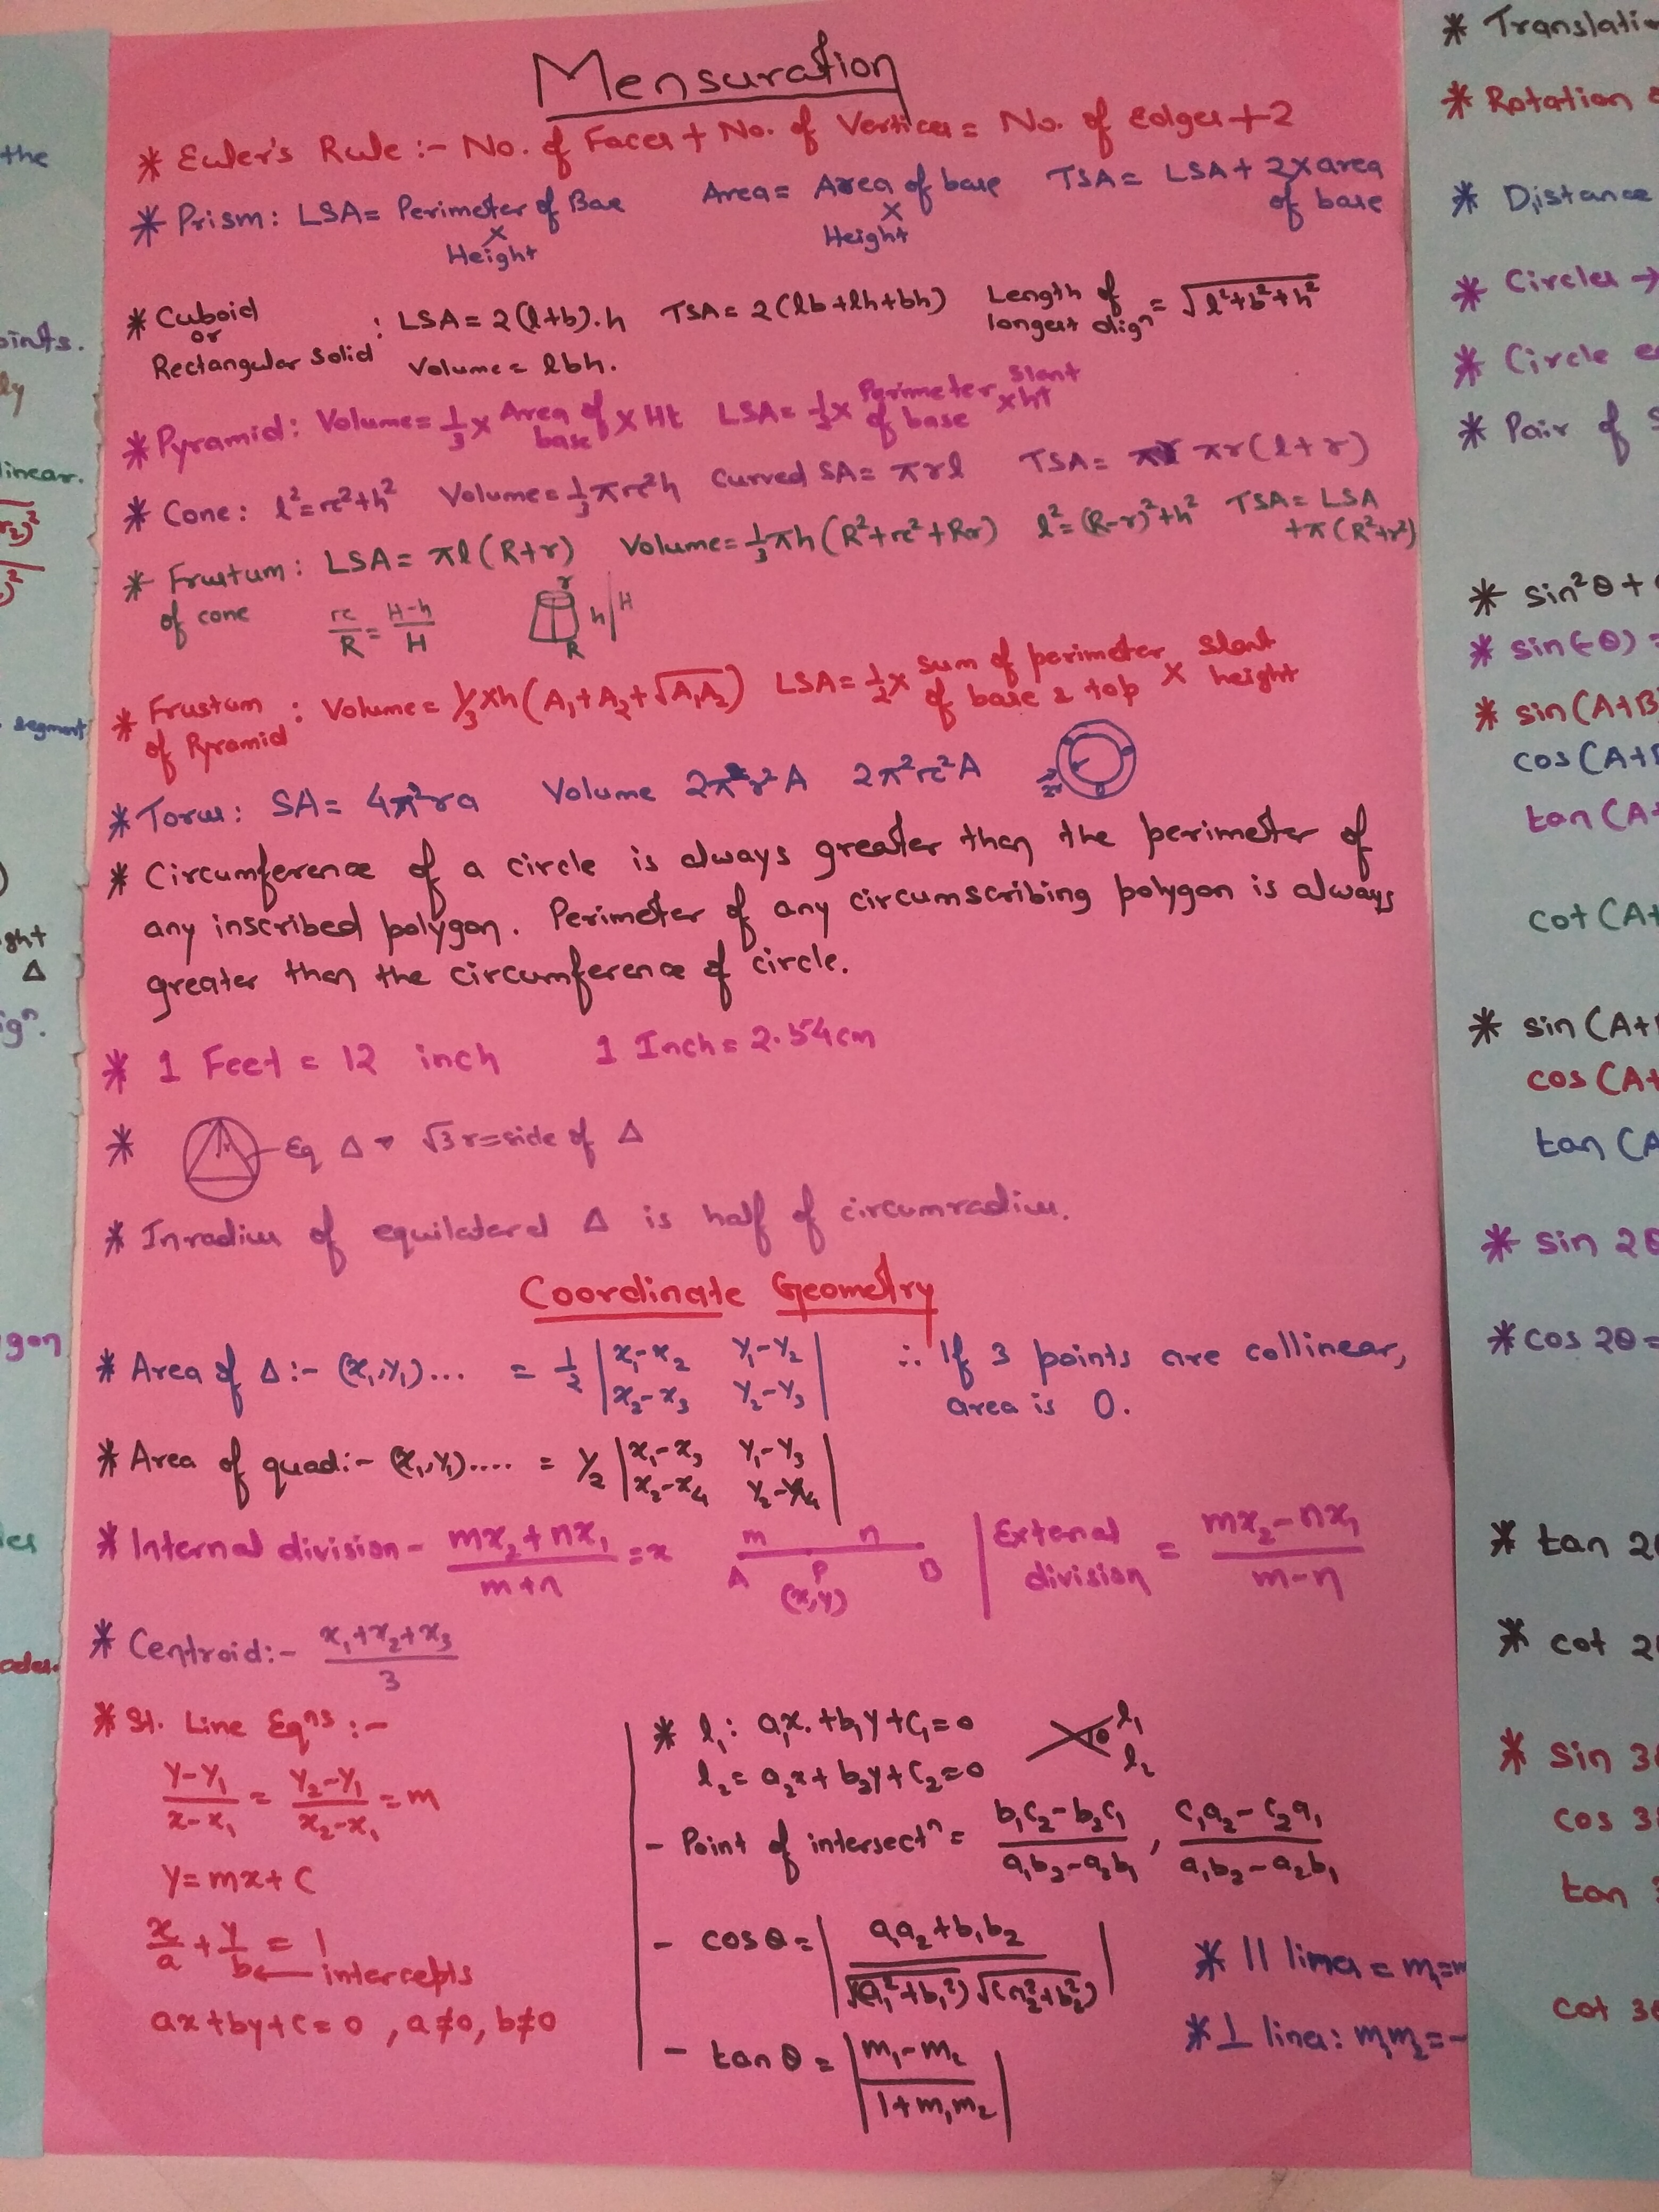 Mensuration
* Euler's Rule :- No. of Faces + No. of Vertices = No. of Edges + 2
* Prism : LSA = Perimeter of Base × Height Area = Area of base × Height TSA = LSA + 2 × area of base
* Cuboid or Rectangular Solid : LSA = 2(l+b).h TSA = 2(lb+lh+bh) Length of longest diagⁿ = √l²+b²+h²
Volume = lbh.
* Pyramid : Volume = 1/3 × Area of base × Ht LSA = 1/2 × Perimeter of base × slant ht
* Cone : l² = r²+h² Volume = 1/3 πr²h Curved SA = πrl TSA = πr(l+r)
* Frustum of cone : LSA = πl(R+r) Volume = 1/3 πh(R²+r²+Rr) l² = (R-r)²+h² TSA = LSA + π(R²+r²)
r/R = H-h/H r h H R
* Frustum of Pyramid : Volume = 1/3 × h(A₁+A₂+√A₁A₂) LSA = 1/2 × sum of perimeter of base & top × slant height
* Torus : SA = 4π²ra Volume 2π²r²A 2π²r²A
* Circumference of a circle is always greater than the perimeter of
any inscribed polygon. Perimeter of any circumscribing polygon is always
greater than the circumference of circle.
* 1 Feet = 12 inch 1 Inch = 2.54cm
* Eq Δ √3 r = side of Δ
* Inradius of equilateral Δ is half of circumradius.
Coordinate Geometry
* Area of Δ :- (x₁,y₁)... = 1/2 | x₁-x₂ y₁-y₂ | ∴ If 3 points are collinear,
| x₂-x₃ y₂-y₃ | area is 0.
* Area of quad :- (x₁,y₁).... = 1/2 | x₁-x₃ y₁-y₃ |
| x₂-x₄ y₂-y₄ |
* Internal division - mx₂+nx₁/m+n = x m n A P B (x,y) External division = mx₂-nx₁/m-n
* Centroid :- x₁+x₂+x₃/3
* St. Line Eqⁿˢ :-
y-y₁/x-x₁ = y₂-y₁/x₂-x₁ = m
y = mx + c
x/a + y/b = 1
intercepts
ax+by+c=0 , a≠0, b≠0
* l₁ : a₁x+b₁y+c₁=0 θ l₁
l₂ = a₂x+b₂y+c₂=0 l₂
- Point of intersectⁿ = b₁c₂-b₂c₁/a₁b₂-a₂b₁ , c₁a₂-c₂a₁/a₁b₂-a₂b₁
- cosθ = | a₁a₂+b₁b₂/√(a₁²+b₁²) √(a₂²+b₂²) |
- tanθ = | m₁-m₂/1+m₁m₂ |
* || lines = m₁=m
* ⊥ lines : m₁m₂ = -
the
points.
ly
linear.
segment
ght
Δ
ign.
gon
* Translatio
* Rotation
* Distance
* Circles →
* Circle e
* Pair of S
* sin²θ +
* sin(-θ) =
* sin(A+B
cos(A+B
tan(A+
cot(A+
* sin(A+
cos(A+
tan(A
* sin 2θ
* cos 2θ =
* tan 2
* cot 2
* sin 3
cos 3
tan 3
cot 3